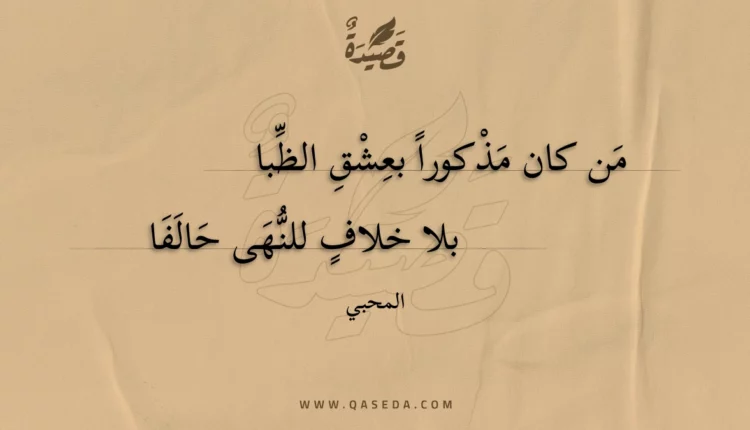 قَصِيْدَةٌ
مَن كان مَذْكوراً بعِشْقِ الظِّبا
بلا خلافٍ للنُّهَى حَالَفَا
المحبي
WWW.QASEDA.COM